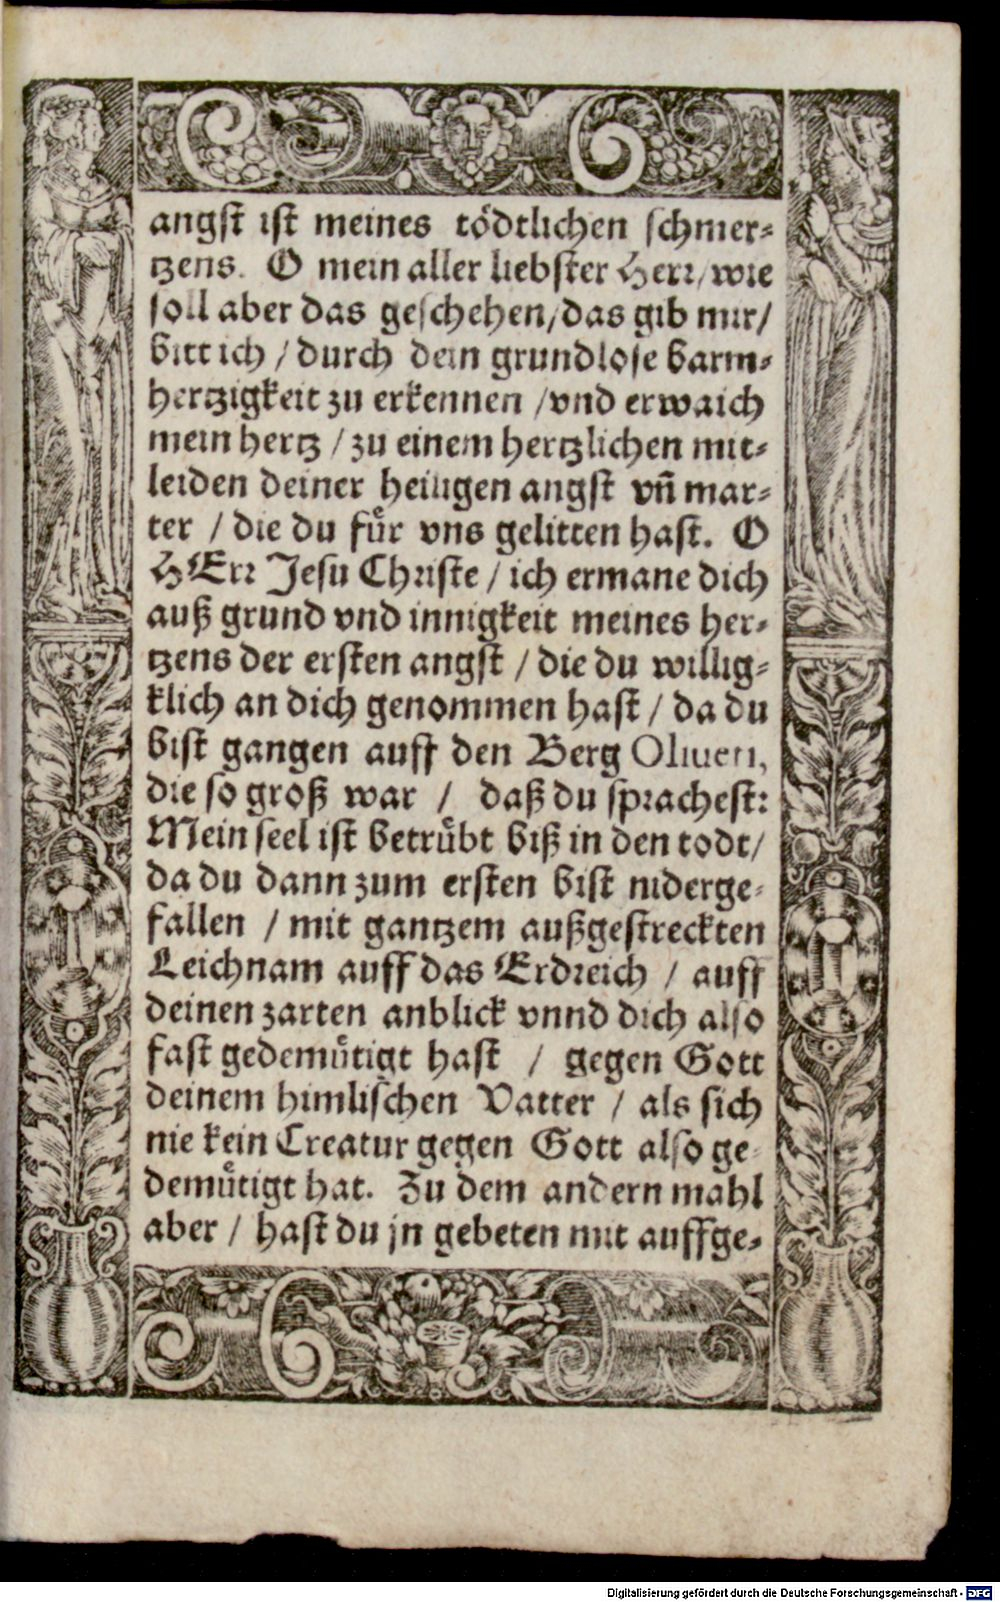 angst ist meines tödtlichen schmer-
tzens. O mein aller liebster Herr/ wie
soll aber das geschehen/ das gib mir/
bitt ich / durch dein grundlose barm-
hertzigkeit zu erkennen /vnd erwaich
mein hertz / zu einem hertzlichen mit-
leiden deiner heiligen angst vñ mar-
ter / die du fuͤr vns gelitten hast. O
HErr Jesu Christe / ich ermane dich
auß grund vnd innigkeit meines her-
tzens der ersten angst / die du willig-
klich an dich genommen hast / da du
bist gangen auff den Berg Oliueti,
die so groß war / daß du sprachest:
Mein seel ist betruͤbt biß in den todt/
da du dann zum ersten bist niderge-
fallen / mit gantzem außgestreckten
Leichnam auff das Erdreich / auff
deinen zarten anblick vnnd dich also
fast gedemuͤtigt hast / gegen Gott
deinem himlischen Vatter / als sich
nie kein Creatur gegen Gott also ge-
demuͤtigt hat. Zu dem andern mahl
aber / hast du jn gebeten mit auffge-
Digitalisierung gefördert durch die Deutsche Forschungsgemeinschaft - DFG